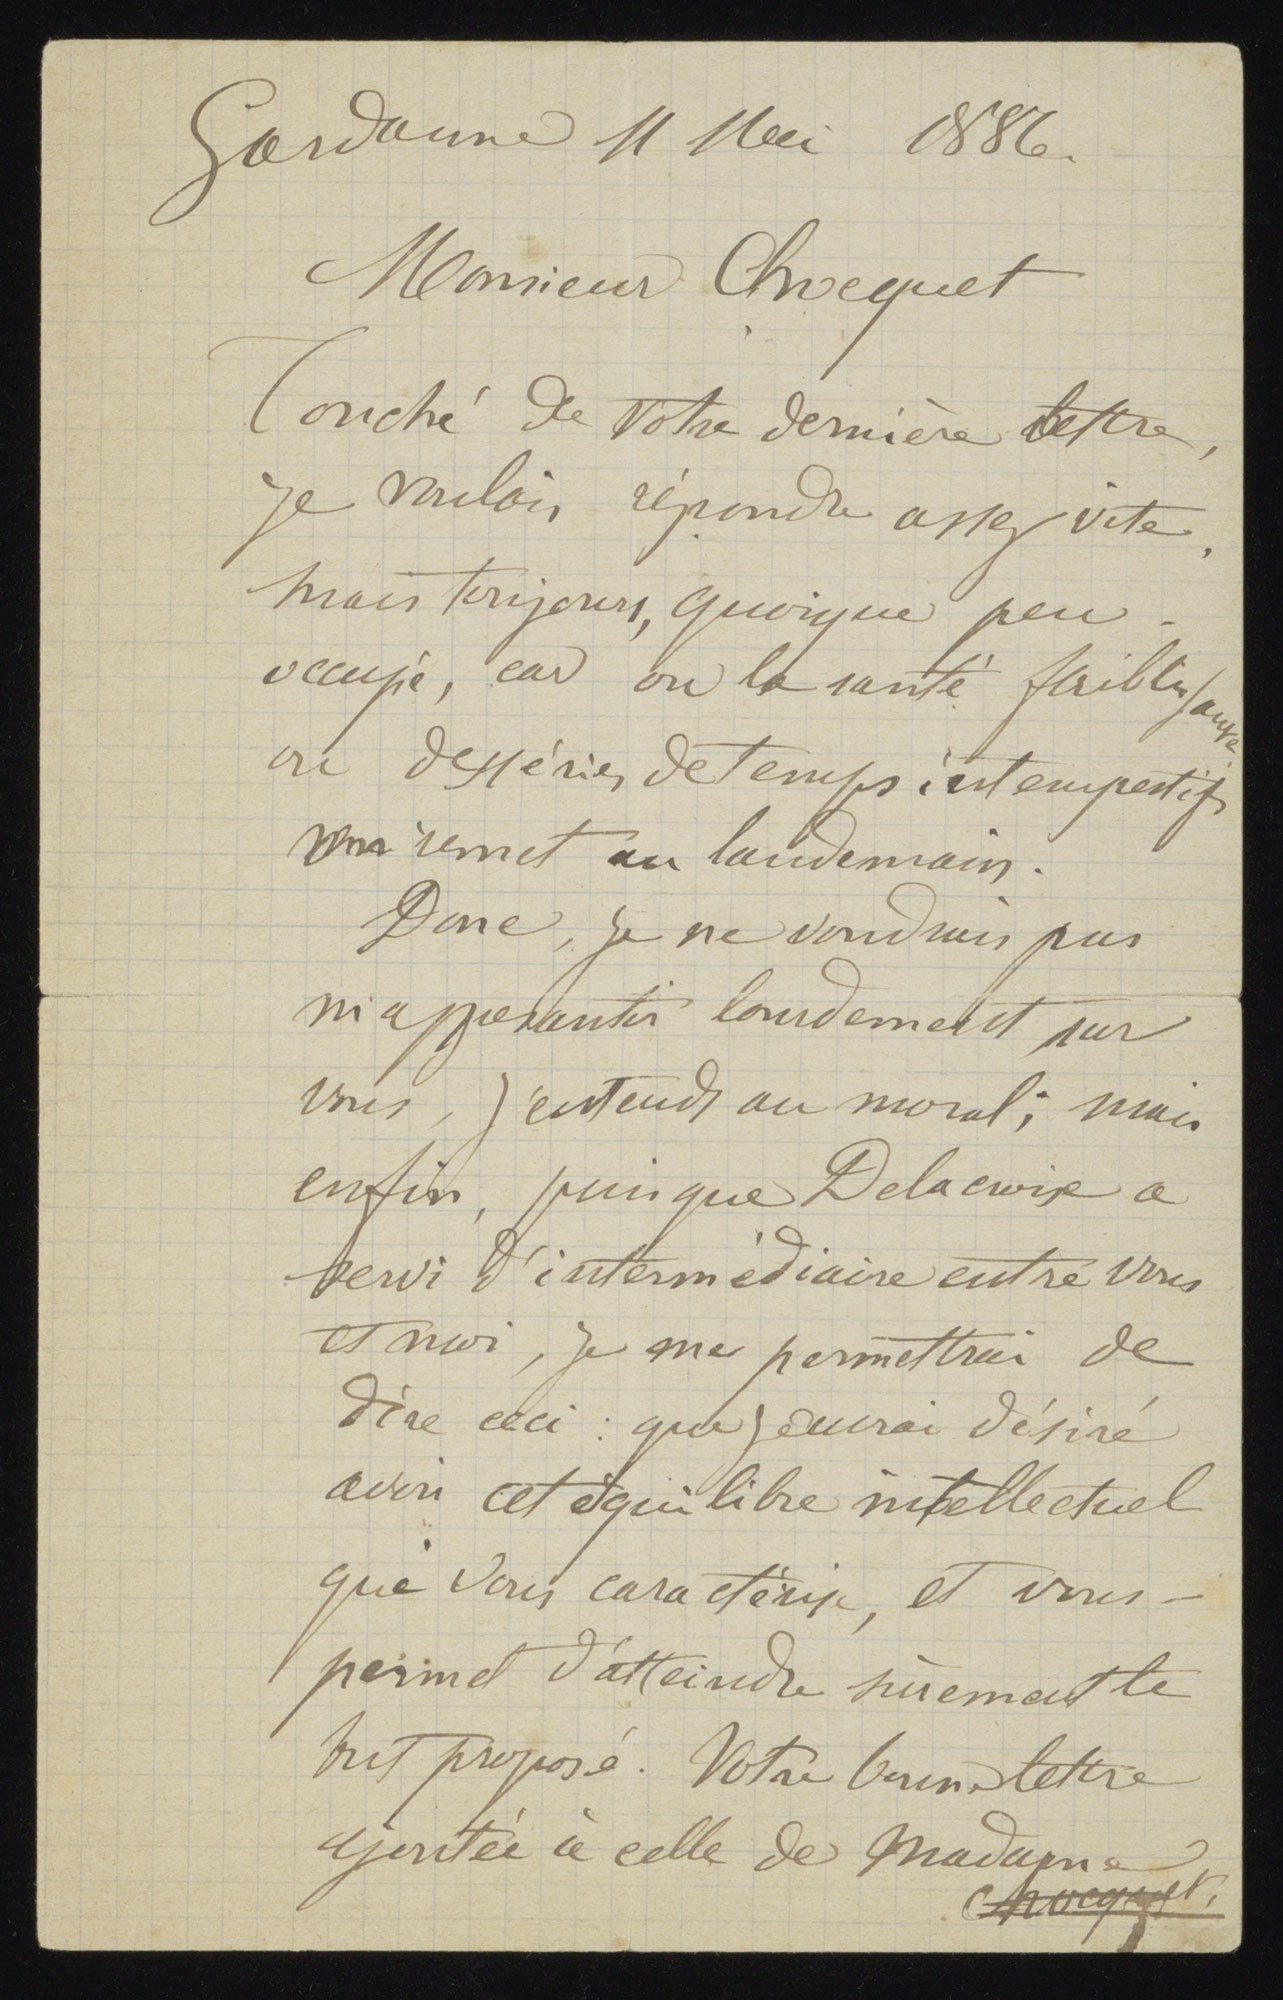 Gardanne 11 Mai 1886.
Monsieur Chocquet
Touché de votre dernière lettre,
je voulais répondre assez vite,
mais toujours, quoique peu
occupé, car ou la santé faiblissante
ou des séries de temps intempestifs
vous remet au landemain.
Donc, je ne voudrais pas
m'appesantir lourdement sur
vous, j'entends au moral; mais
enfin, puisque Delacroix a
servi d'intermédiaire entre vous
et moi, je me permettrai de
dire ceci : que j'eaurai désiré
avoir cet équilibre intellectuel
qui vous caractérise, et vous
permet d'atteindre sûrement le
but proposé. Votre bonne lettre
ajoutée à celle de Madame
Chocquet,